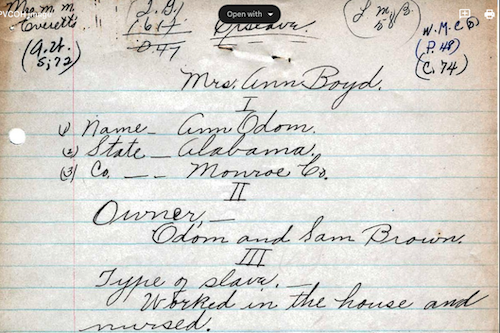 Mrs. M. M. Everetts
(A.W. 5; 72)
Open with
Exslave.
W.M.C.
(P. 48)
(C. 74)
Mrs. Ann Boyd.
I
(1) Name — Ann Odom.
(2) State — Alabama.
(3) Co. — — Monroe Co.
II
Owner, —
Odom and Sam Brown.
III
Type of slave. —
Worked in the house and
nursed.